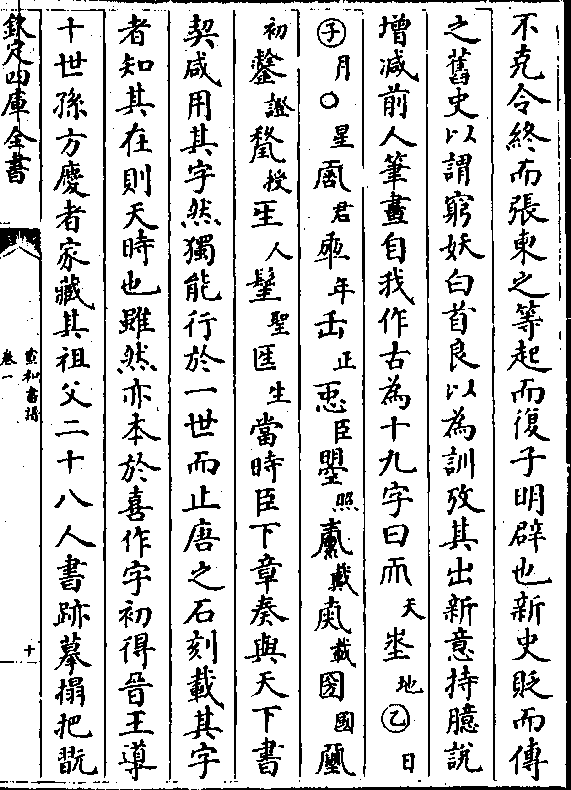 不克令終而張柬之等起而復子明辟也新史貶而傳
之舊史以謂窮妖白首良以為訓攷其出新意持臆說
增減前人筆畫自我作古為十九字曰𠀑天埊地㊁日
月〇星𢘑君𠡦年𠙺正𢘑臣曌照𡕀載𡔈載圀國𤪎
初𨭻證𥠢授𤯔人𨲢聖𠥱生當時臣下章奏與天下書
契咸用其字然獨能行於一世而止唐之石刻載其字
者知其在則天時也雖然亦本於喜作字初得晉王導
十世孫方慶者家藏其祖父二十八人書跡摹搨把翫
欽定四庫全書
宣和書譜
卷一
十